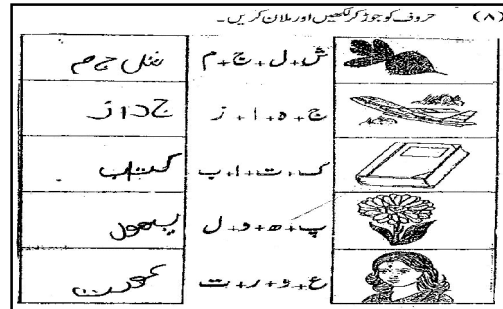 (۸) حروف کو جوڑ کر لکھیں اور ملان کریں۔
ش + ل + ج + م
ج + ہ + ا + ز
ک + ت + ا + ب کتاب
پ + ھ + و + ل پھول
ع + و + ر + ت عورت